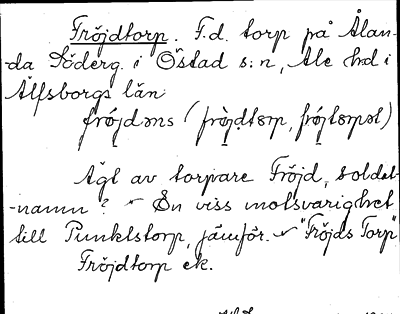 Fröjdtorp. F.d. torp på Ålan-
-da Söderg. i Östad s:n, Ale hd i
Älfsborgs län
fröjdəns (fröjdtorp, fröjtorpət)
Ägt av torpare Fröjd, soldat-
-namn? En viss motsvarighet
till Punktstorp, jämför. "Fröjds Torp"
Fröjdtorp ek.